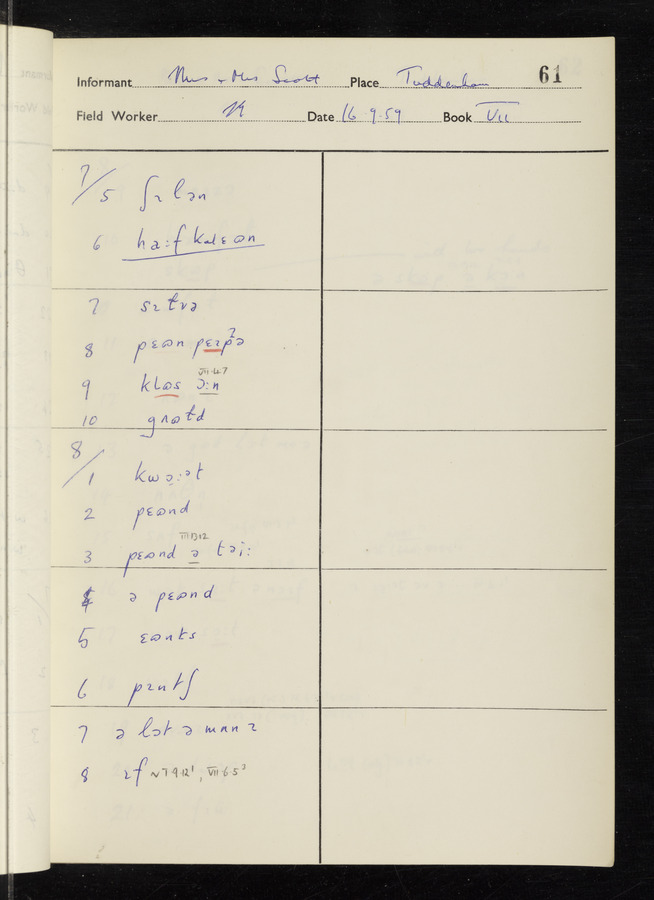 Informant Mrs + Mrs Scott Place Tuddenham 61
Field Worker Date 16.9.59 Book VII
7/5 ʃɪlən
6 ha:f kɹɛʊn
7 sɪtvə
8 pɛʊn pɛɪpə
9 klɒs ə:n VII.4.7
10 gɹʌʊtd
8/1 kwɔ:ət
2 pɛʊnd
3 pɛʊnd ə təi: III.13.12
4 ə pɛʊnd
5 ɛʊnts
6 pɪntʃ
7 ə lɔt ə mʌnɪ
8 ɪf